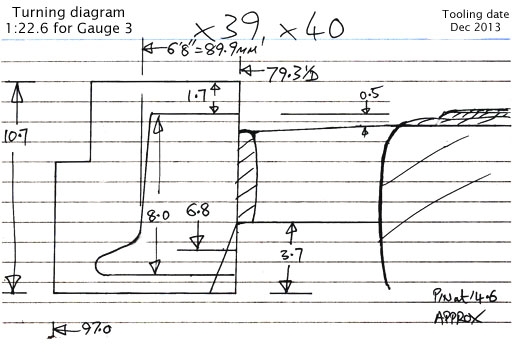 Turning diagram
1:22.6 for Gauge 3
x39, x40
Tooling date
Dec 2013
6'8"=89.9MM
79.3 I/D
1.7
0.5
10.7
8.0
6.8
3.7
P/N at 14.6
APPROX
97.0